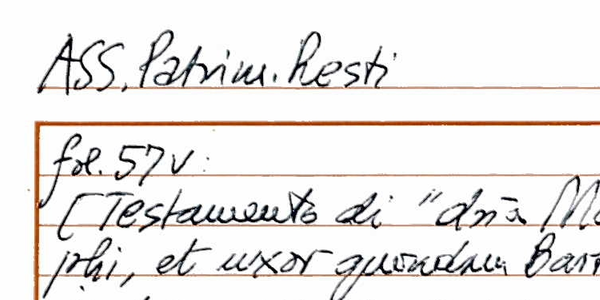 ASS. Patrim. Resti
fol. 57v:
[Testamento di "dnā M
phi, et uxor quondam Bar